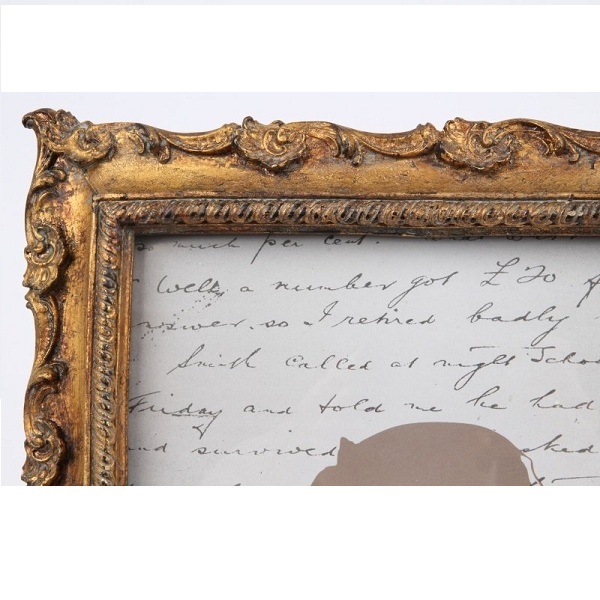 so much per cent.
Well, a number got £70
answer. so I retired badly
Smith called at night School
Friday and told me he had
and survived asked